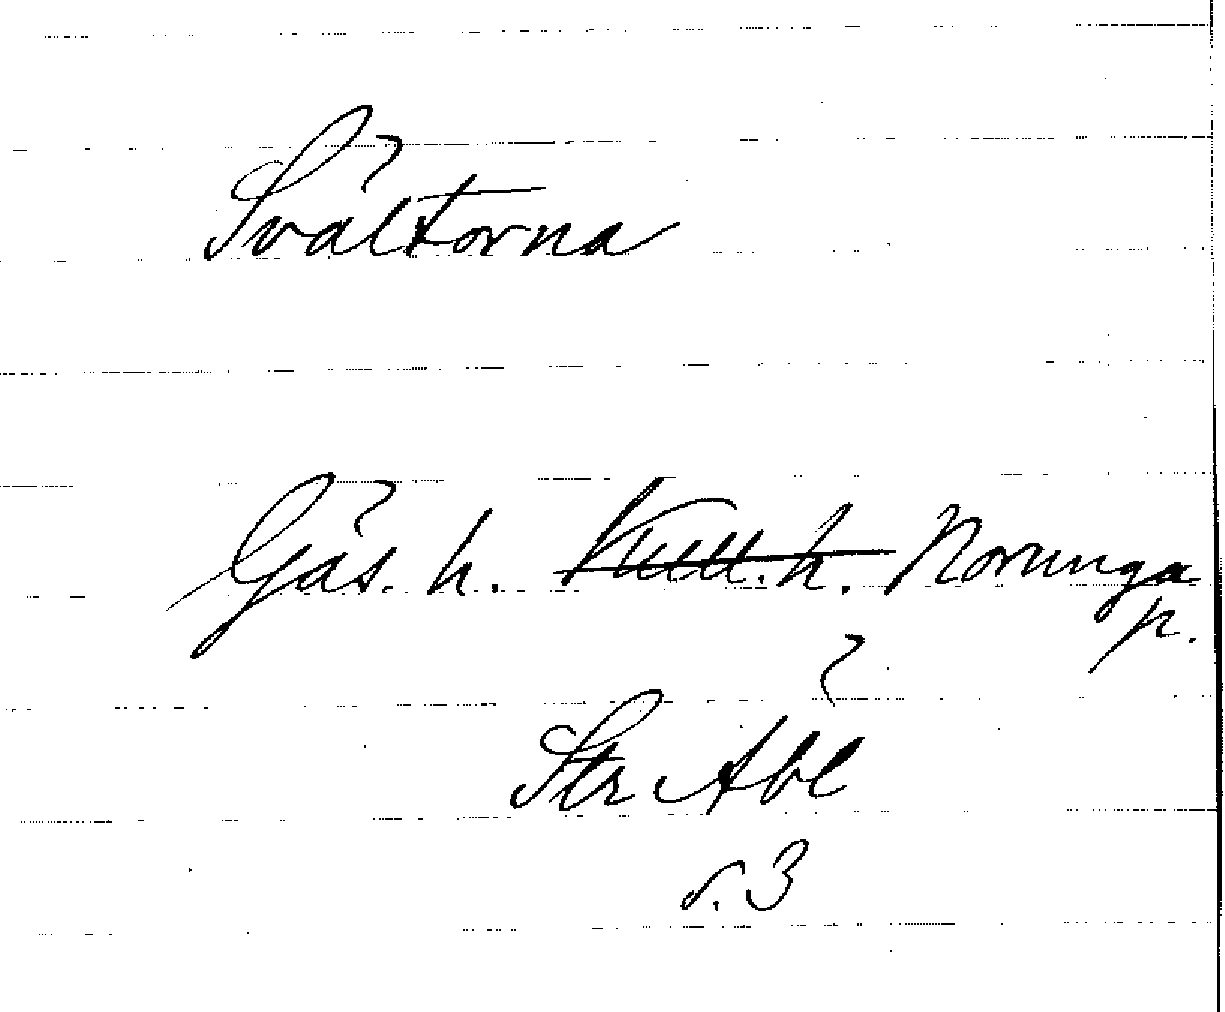 Svältorna
Gäs. h. Kull. h. Norunga
p.
Str Abl
s. 3